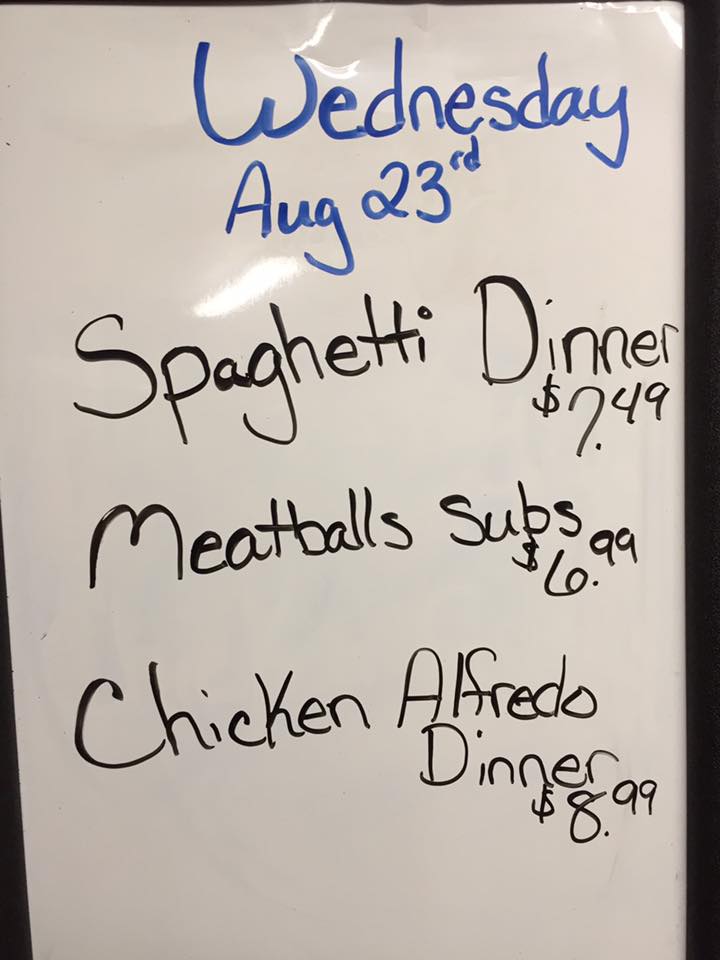 Wednesday
Aug 23rd
Spaghetti Dinner
$7.49
Meatballs Subs
$6.99
Chicken Alfredo
Dinner
$8.99